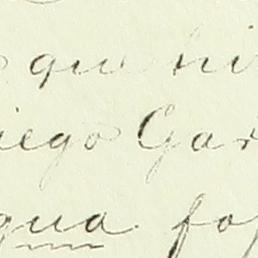 que hi
iego Gar
qua fo